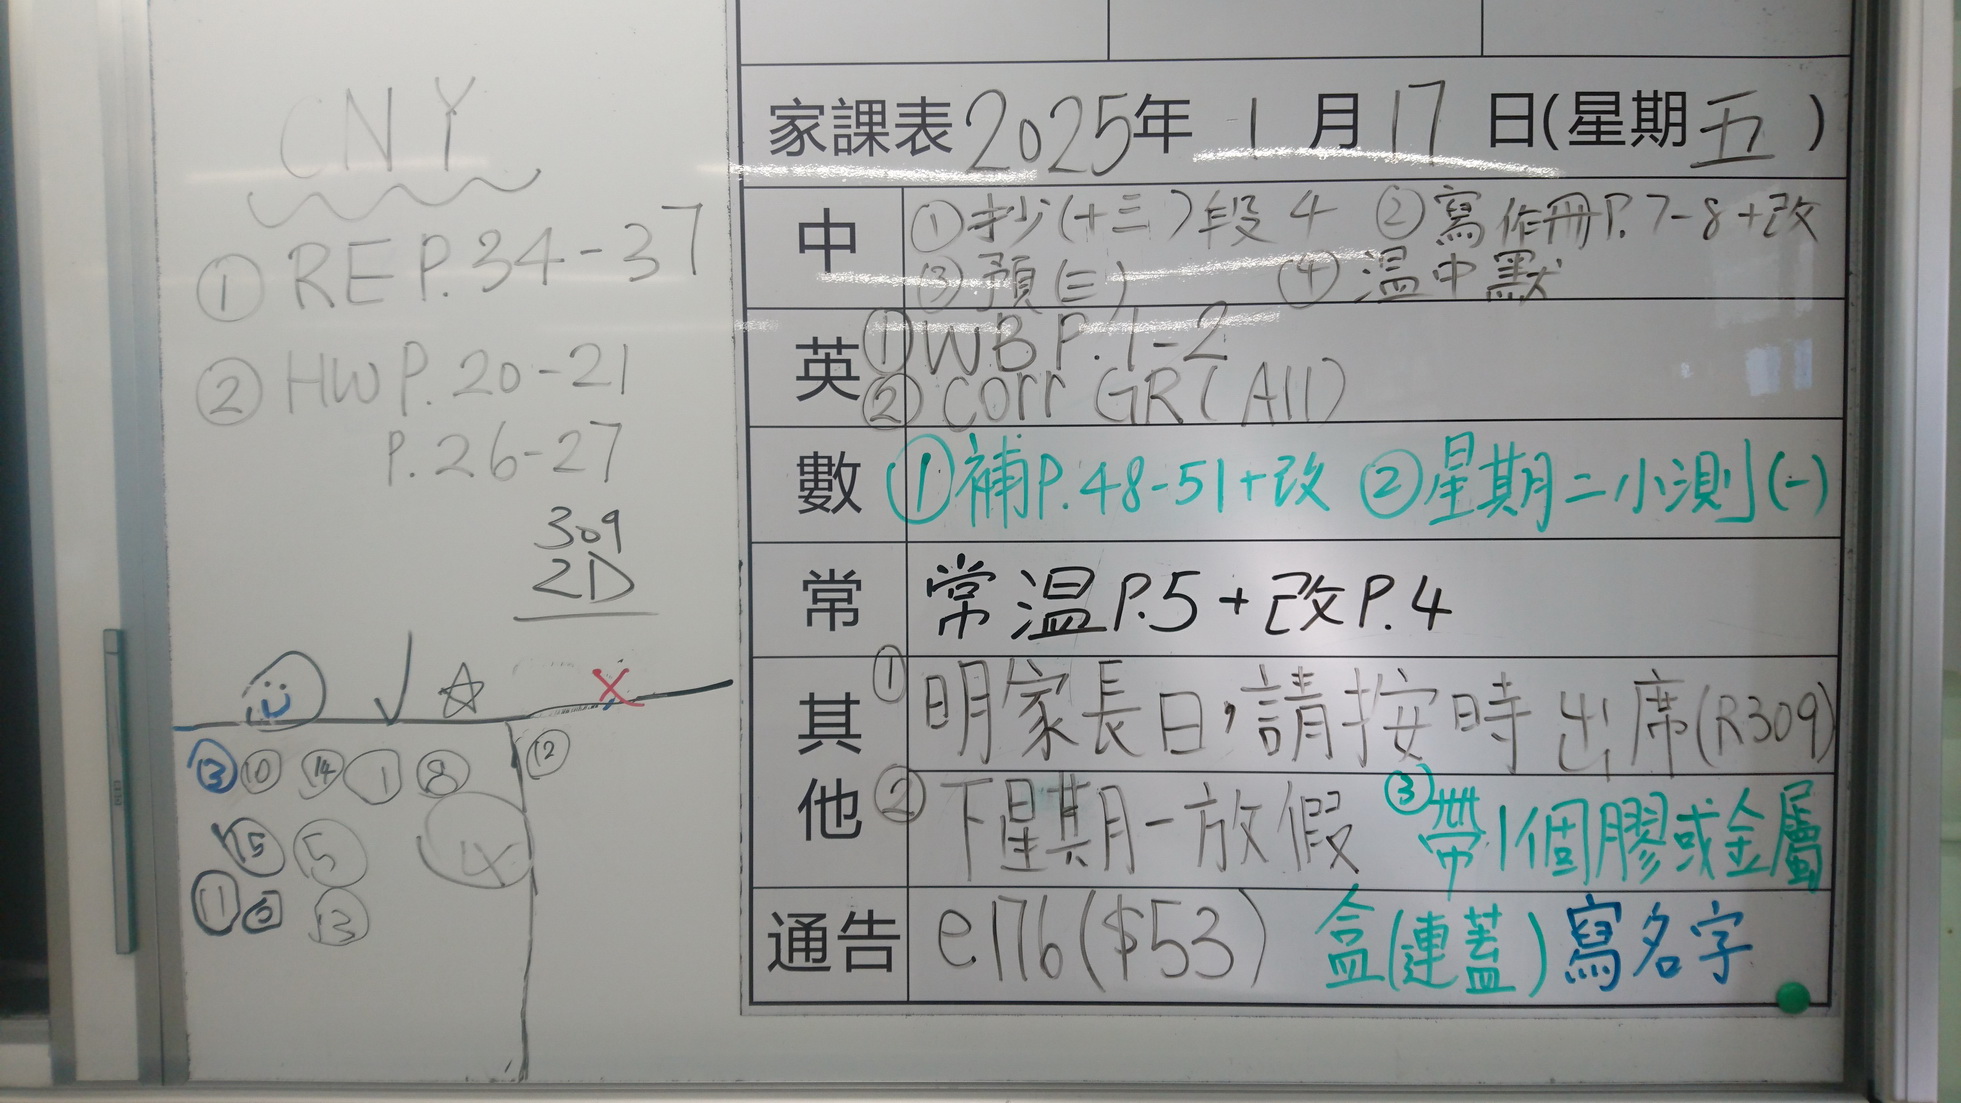 CNY
① RE P.34-37
② HW P.20-21
P.26-27
309
2D
⑬ ⑩ ⑭ ① ⑧ ⑫
⑮ ⑤
⑬
家課表 2025年 1 月 17 日(星期 五 )
中 ①抄(十三)段 4 ②寫作冊P.7-8+改
③預(三) ④溫中默
英 ①WB P.1-2
②corr GR(All)
數 ①補P.48-51+改 ②星期二小測(一)
常 常溫P.5+改P.4
其他 ①明家長日,請按時出席(R309)
②下星期一放假 ③帶1個膠或金屬
盒(連蓋)寫名字
通告 e.176($53)